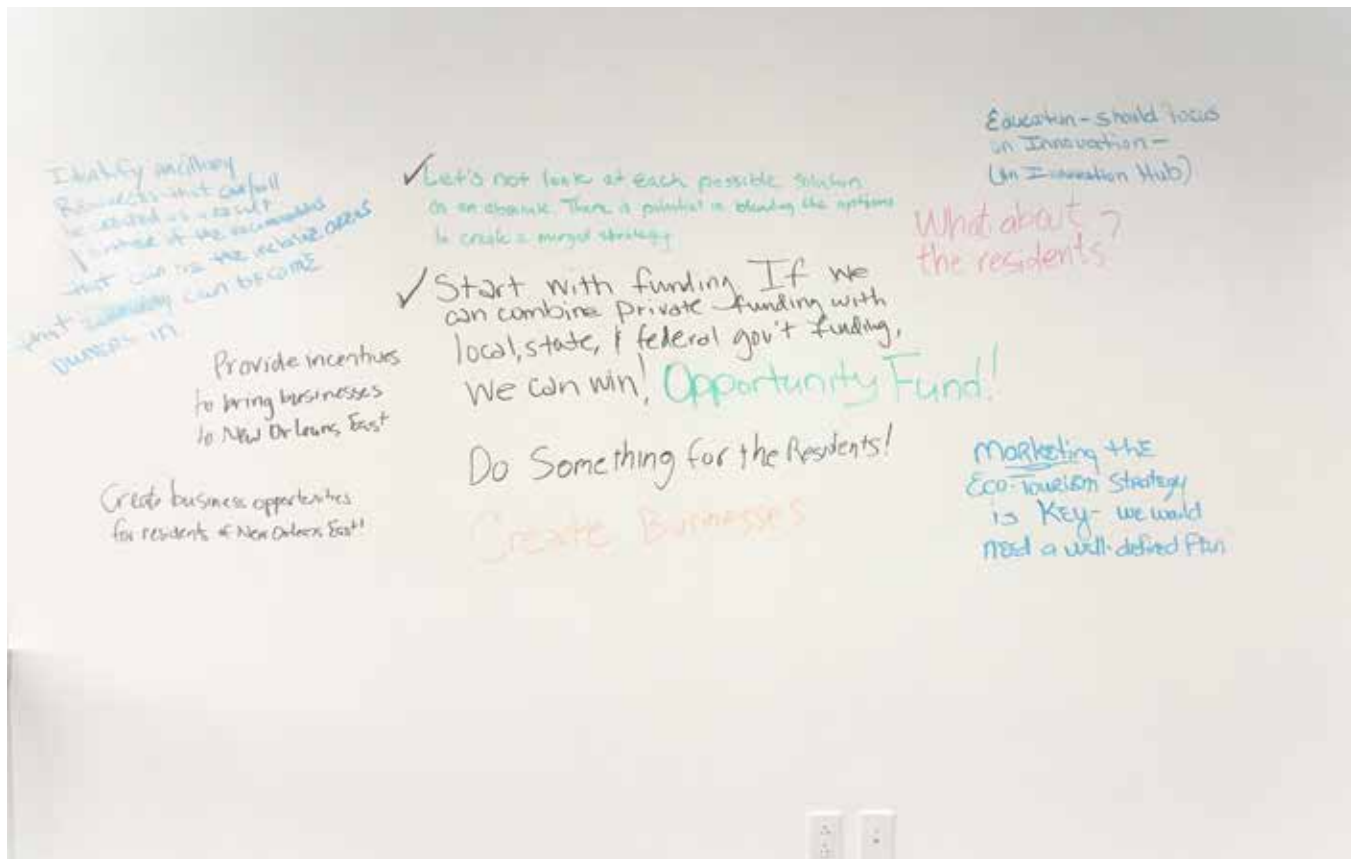 Identify ancillary
Resources that can/will
be created as a result
of the
that can
that can become
owners in
Provide incentives
to bring businesses
to New Orleans East
Create business opportunities
for residents of New Orleans East!
✓ Let's not look at each possible solution
as an absolute. There is potential in blending the options
to create a merged strategy
✓ Start with funding If we
can combine private funding with
local, state, & federal gov't funding,
we can win! Opportunity Fund!
Do Something for the Residents!
Create Businesses
Education - should focus
on Innovation -
(an Innovation Hub)
What about
the residents?
Marketing the
Eco-Tourism Strategy
is Key - we would
need a well-defined Plan